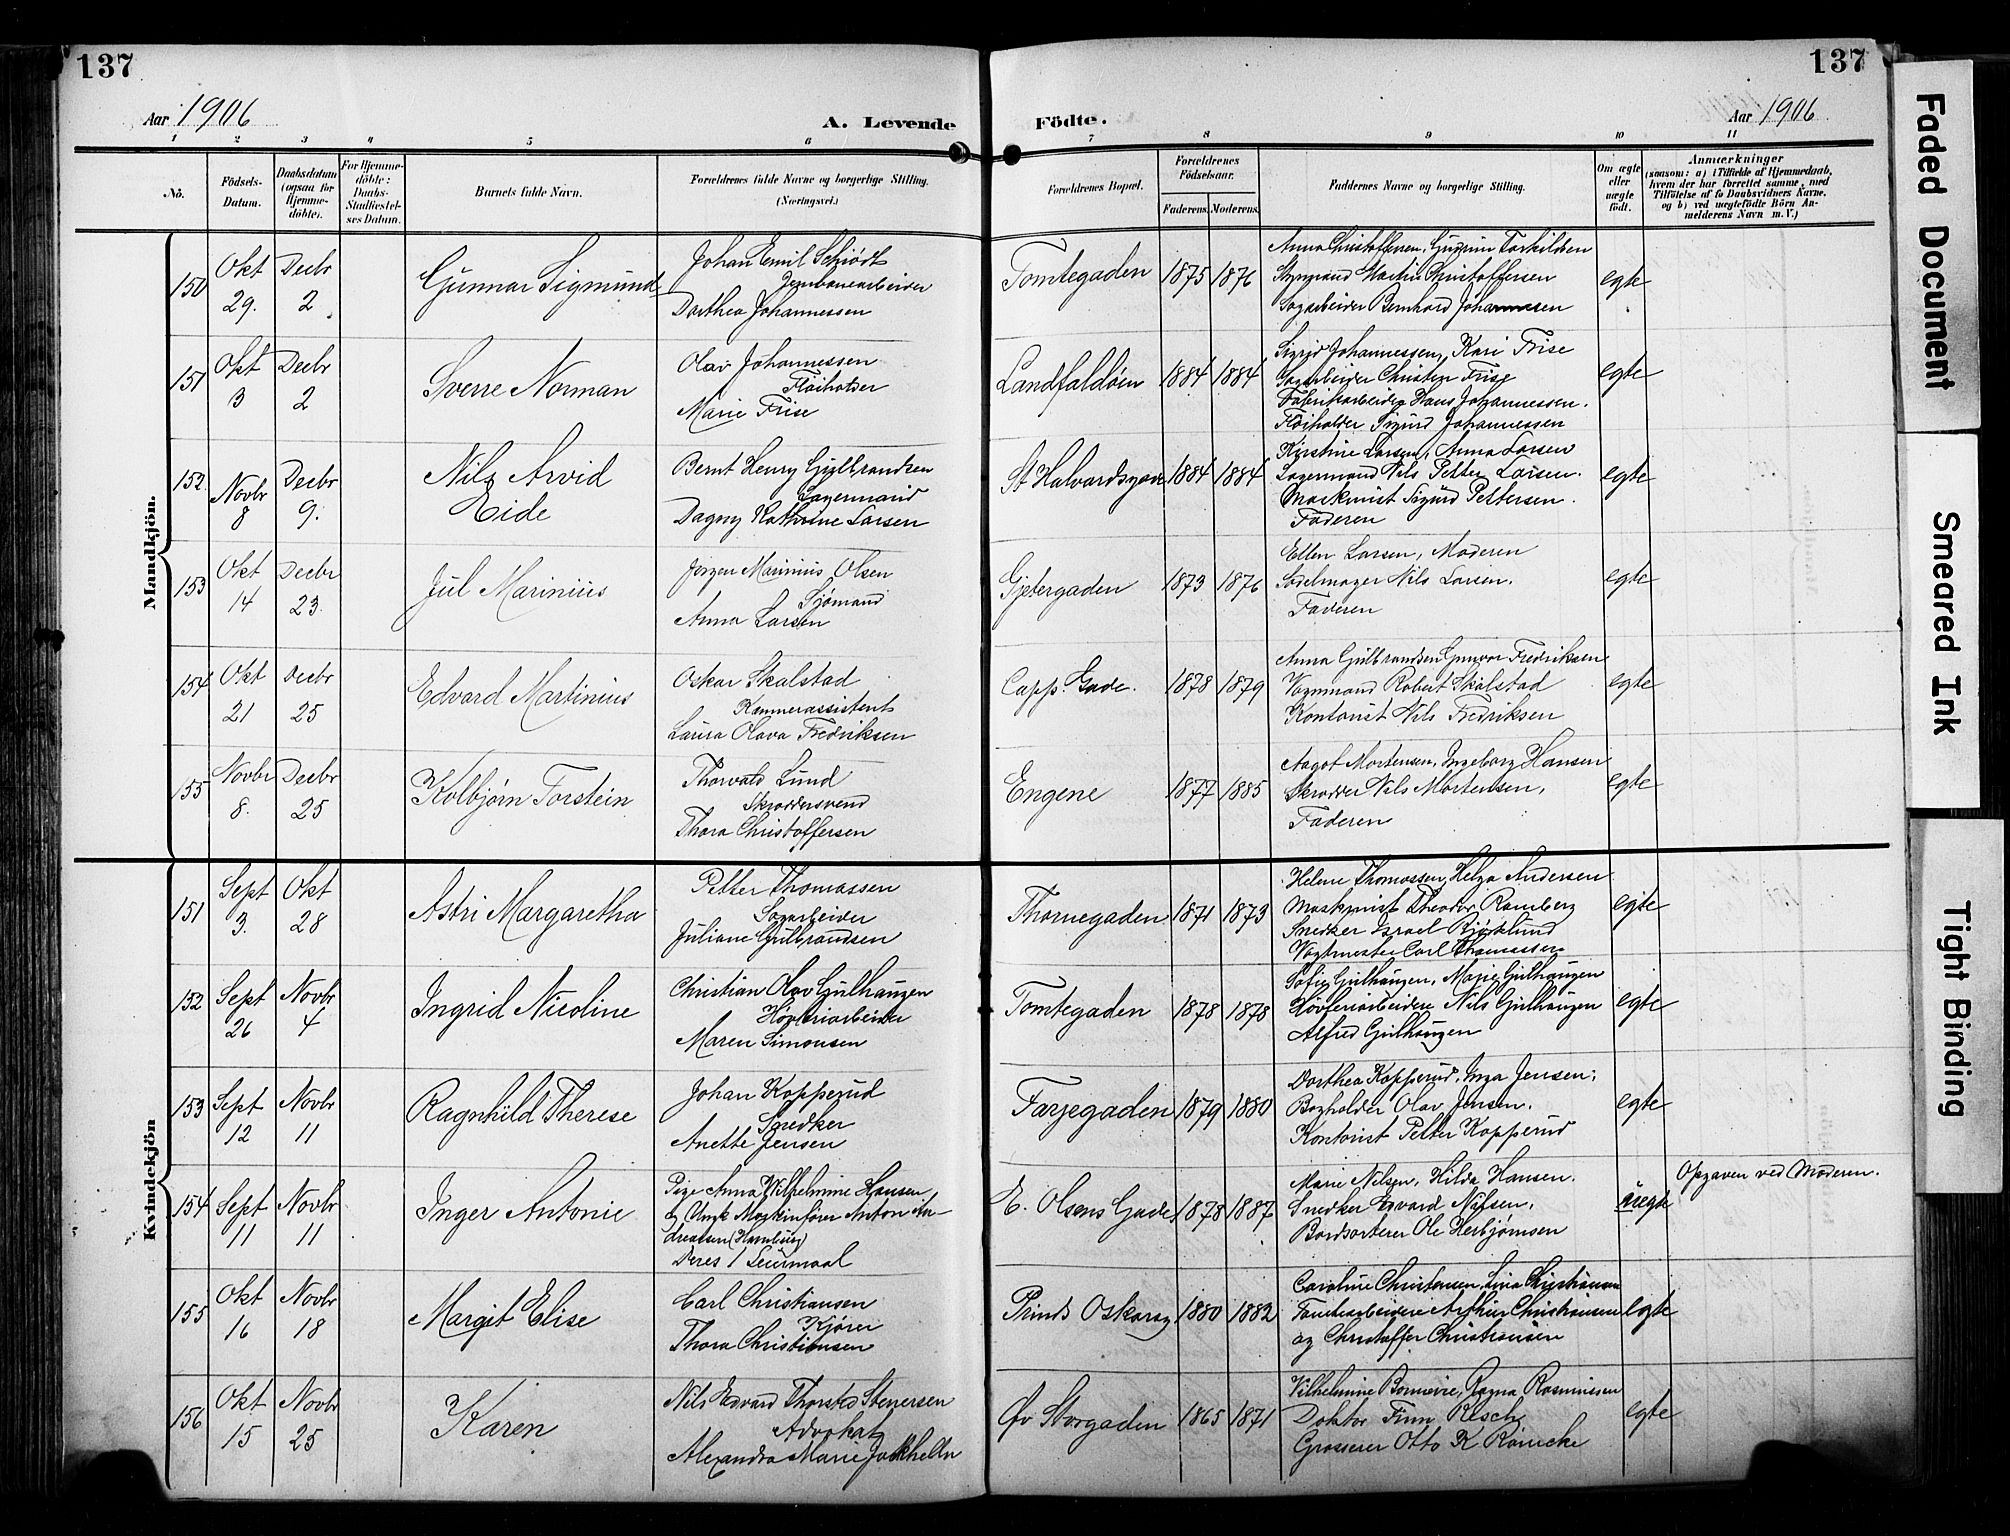 137
137
Aar 1906
A. Levende
Födte.
Aar 1906.
1 2 3 4 5 6 7 8 9 10 11
No.
Födsels-
Datum.
Daabsdatum
(ogsaa for
Hjemme-
döbte).
For Hjemme-
döbte:
Daabs-
Stadfæstel-
ses Datum.
Barnets fulde Navn.
Forældrenes fulde Navne og borgerlige Stilling.
(Næringsvei.)
Forældrenes Bopæl.
Forældrenes
Födselsaar.
Faderens. Moderens.
Faddernes Navne og borgerlige Stilling.
Om ægte
eller
uægte
født.
Anmærkninger
(saasom: a) i Tilfælde af Hjemmedaab,
hvem der har forrettet samme, med
Tilföielse af to Daabsvidners Navne,
og b) ved uægtefödte Börn An-
melderens Navn m. V.)
Mandkjön.
150
Okt
29.
Decbr
2
Gunnar Sigmund
Johan Emil Schiödt
Jernbanearbeider
Dorthea Johannessen
Tomtegaden
1875 1876
Anna Christoffersen, Gudrun Torkildsen
Martin Christoffersen
Sagarbeider Bernhard Johannessen
egte
151
Okt
3
Decbr
2
Sverre Norman
Olav Johannessen
Fløiholder
Marie Frise
Landfaldøen
1884 1884
Sigrid Johannessen, Kari Frise
Sagarbeider Christen Frise
Fabrikarbeider Hans Johannessen.
Fløiholder Sigurd Johannessen
egte
152
Novbr
8
Decbr
9.
Nils Arvid
Eide
Bernt Henry Gulbrandsen
Lagermand
Dagny Kathrine Larsen
St Halvardsgade
1884 1884
Kirstine Larsen, Anna Larsen
Lagermand Nils Petter Larsen.
Maskinist Sigurd Pettersen.
Faderen
egte
153
Okt
14
Decbr
23.
Jul Marinius
Jørgen Marinius Olsen
Sjømand
Anna Larsen
Gjetergaden
1873 1876
Ellen Larsen, Moderen
Sadelmager Nils Larsen.
Faderen
egte
154
Okt
21
Decbr
25
Edvard Martinius
Oskar Skalstad
Kammerassistent
Laura Olava Fredriksen
Capp. Gade.
1878 1879
Anna Gulbrandsen Gunvor Fredriksen
Vognmand Robert Skalstad
Kontorist Nils Fredriksen
egte
155
Novbr
8.
Decbr
25
Kolbjørn Torstein
Thorvald Lund
Skræddersvend
Thora Christoffersen
Engene
1877 1885
Aagot Mortensen, Ingeborg Hansen
Skrædder Nils Mortensen,
Faderen
egte
Kvindekjön
151
Sept
3.
Okt
28
Astri Margaretha
Petter Thomassen
Sagarbeider
Juliane Gulbrandsen
Thornegaden
1871 1873
Helene Thomassen, Helga Andersen
Maskinist Theodor Ramberg
Snedker Israel Bjørklund
Vagtmester Carl Thomassen
egte
152
Sept
26
Novbr
4
Ingrid Nicoline
Christian Olav Gulhaugen
Høvleriarbeider
Maren Simonsen
Tomtegaden
1878 1878
Sofie Gulhaugen, Marie Gulhaugen
Høvleriarbeidere Nils Gulhaugen
Alfred Gulhaugen
egte
153
Sept
12
Novbr
11
Ragnhild Therese
Johan Kopperud
Snedker
Anette Jensen
Farjegaden
1879 1880
Dorthea Kopperud, Inga Jensen,
Bogholder Olav Jensen.
Kontorist Petter Kopperud
egte
154
Sept
11
Novbr
11
Inger Antonie
Pige Anna Wilhelmine Hansen
og Ungk Maskinfører Anton An-
dreasen (Hamburg)
Deres 1 Leiermaal
E. Olsens Gade
1878 1887
Marie Nilsen, Hilda Hansen.
Snedker Edvard Nilsen,
Bordsorterer Ole Herbjørnsen
uegte
Opgaven ved Moderen.
155
Okt
16
Novbr
18
Margit Elise
Carl Christiansen
Kjører
Thora Christiansen
Prinds Oskarsg
1880 1882
Caroline Christensen, Lina Christiansen
Tomtearbeidere Arthur Christiansen
og Christoffer Christiansen
egte
156
Okt
15
Novbr
25
Karen
Nils Edvard Thorsted Stenersen
Advokat
Alexandra Marie Jakhelln
Øv Storgaden
1865 1871
Vilhelmine Bonnevie, Ragna Rasmussen
Doktor Finn Resch
Grosserer Otto K Römcke
egte
Faded Document
Smeared Ink
Tight Binding